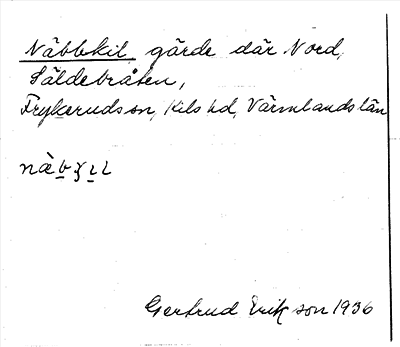 Näbbkil gärde där Nord,
Säldebråten,
Frykeruds sn, Kils hd, Värmlands län
Gertrud Erikson 1936